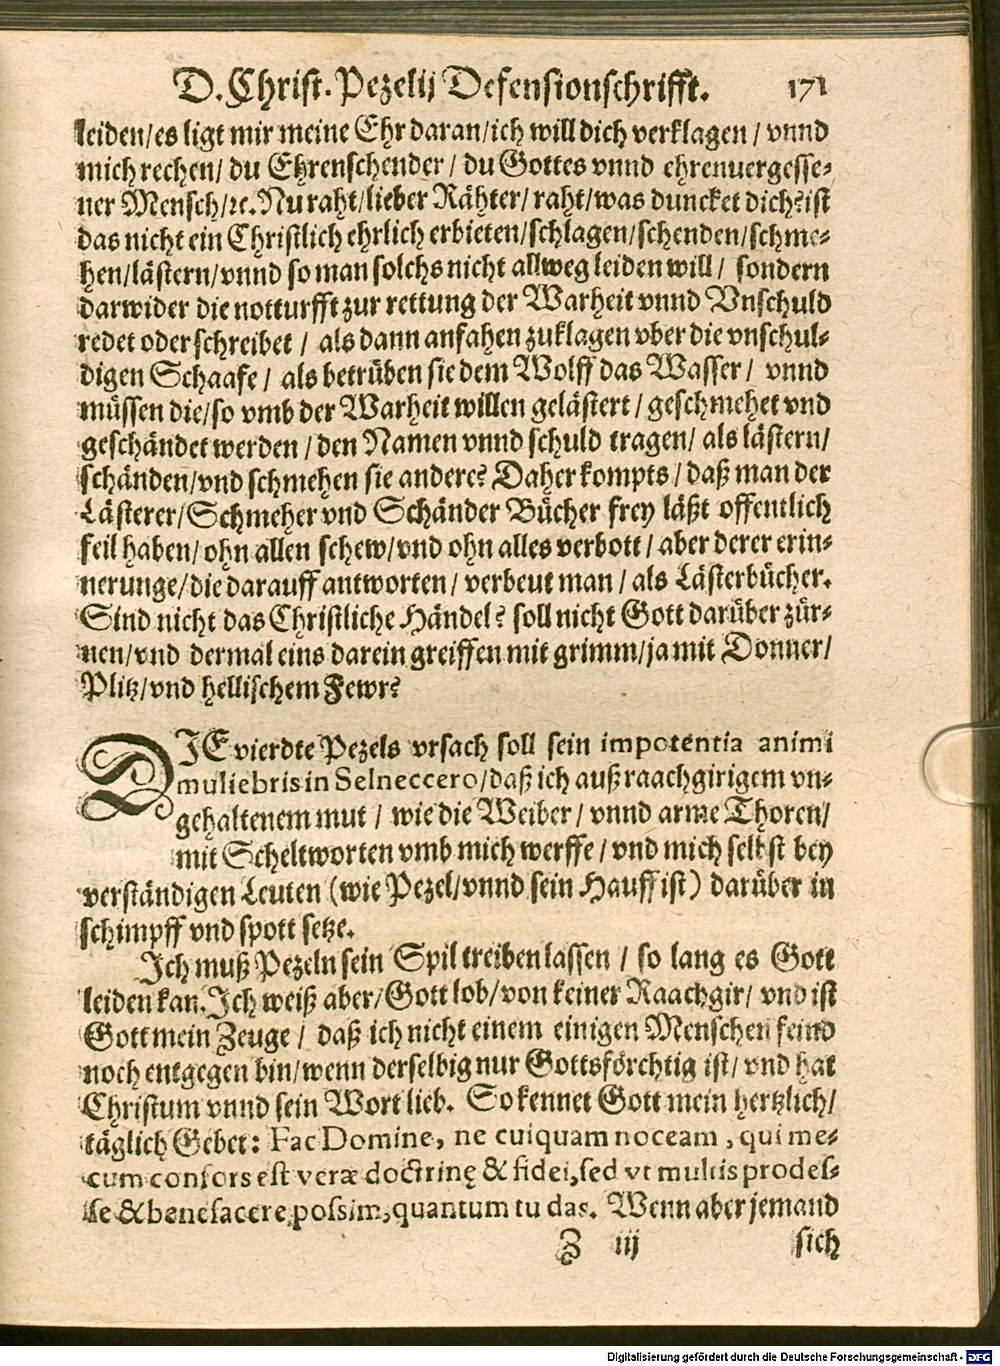 D. Christ. Pezelij Defensionschrifft. 171
leiden/es ligt mir meine Ehr daran/ich will dich verklagen / vnnd
mich rechen/ du Ehrenschender / du Gottes vnnd ehrenuergesse-
ner Mensch/ꝛc. Nu raht/lieber Rähter/ raht/was duncket dich? ist
das nicht ein Christlich ehrlich erbieten/schlagen/schenden/schme-
hen/lästern/vnnd so man solchs nicht allweg leiden will / sondern
darwider die notturfft zur rettung der Warheit vnnd Vnschuld
redet oder schreibet / als dann anfahen zuklagen vber die vnschul-
digen Schaafe / als betrüben sie dem Wolff das Wasser / vnnd
müssen die/so vmb der Warheit willen gelästert / geschmehet vnd
geschändet werden / den Namen vnnd schuld tragen/ als lästern/
schänden/vnd schmehen sie andere? Daher kompts / daß man der
Lästerer/Schmeher vnd Schänder Bücher frey läßt offentlich
feil haben/ ohn allen schew/vnd ohn alles verbott / aber derer erin-
nerunge/die darauff antworten / verbeut man / als Lästerbücher.
Sind nicht das Christliche Händel? soll nicht Gott darüber zür-
nen/vnd dermal eins darein greiffen mit grimm/ja mit Donner/
Plitz/vnd hellischem Fewr?
DIE vierdte Pezels vrsach soll sein impotentia animi
muliebris in Selneccero/daß ich auß raachgirigem vn-
gehaltenem mut / wie die Weiber / vnnd arme Thoren/
mit Scheltworten vmb mich werffe / vnd mich selbst bey
verständigen Leuten (wie Pezel/vnnd sein Hauff ist) darüber in
schimpff vnd spott setze.
Ich muß Pezeln sein Spil treiben lassen / so lang es Gott
leiden kan. Ich weiß aber/Gott lob/von keiner Raachgir/ vnd ist
Gott mein Zeuge / daß ich nicht einem einigen Menschen feind
noch entgegen bin/wenn derselbig nur Gottsförchtig ist/ vnd hat
Christum vnnd sein Wort lieb. So kennet Gott mein hertzlich/
täglich Gebet: Fac Domine, ne cuiquam noceam, qui me-
cum consors est veræ doctrinę & fidei, sed vt multis prodes-
se & benefacere possim, quantum tu das. Wenn aber jemand
Z iij sich
Digitalisierung gefördert durch die Deutsche Forschungsgemeinschaft - DFG